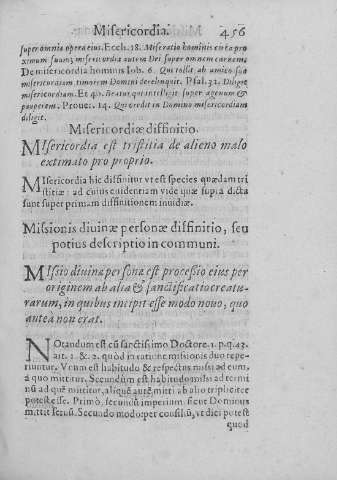 Misericordia. 456
super omnia opera eius. Eccli. 18. Miseratio hominis circa pro
ximum suum, misericordia autem Dei super omnem carnem.
De misericordia hominis Iob. 6. Qui tollit ab amico suo
misericordiam timorem Domini derelinquit. Psal. 32. Diligit
misericordiam. Et 40. Beatus qui intelligit super egenum &
pauperem. Prouer. 14. Qui credit in Domino misericordiam
diligit.
Misericordiæ diffinitio.
MIsericordia est tristitia de alieno malo
extimato pro proprio.
MIsericordia hic diffinitur vt est species quædam tri
stitiæ: ad cuius euidentiam vide quæ supra dicta
sunt super primam diffinitionem inuidiæ.
Missionis diuinæ personæ diffinitio, seu
potius descriptio in communi.
MIssio diuinæ personæ est processio eius per
originem ab alia & sanctificatio creatu-
rarum, in quibus incipit esse modo nouo, quo
autea non erat.
NOtandum est cū sanctissimo Doctore. 1. p. q. 43.
art. 1. & 2. quòd in ratione missionis duo repe-
riuntur. Vnum est habitudo & respectus missi ad eum,
a quo mittitur. Secundùm est habitudo missi ad termi
nū ad quē mittitur, aliquē autē mitti ab alio tripliciter
potest esse. Primò, secundū imperium sicut Dominus
mittit seruū. Secundo modo per consiliū, vt dici potest
quod